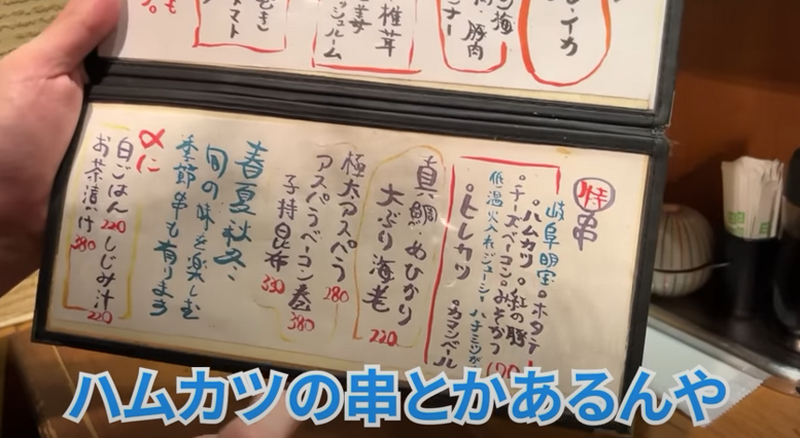 イカ
豚肉
椎茸
トマト
特串
岐阜明宝
・ホタテ
・ハムカツ
・紅の豚
・チーズベーコン
・みそかつ
低温火入れジューシー
・ヒレカツ
・カマンベール
真鯛
めひかり
大ぶり海老
220
極太アスパラ
280
アスパラベーコン巻
380
子持昆布
330
春夏秋冬、
旬の味を楽しむ
季節串も有ります
〆に
白ごはん
220
しじみ汁
220
お茶漬け
380
ハムカツの串とかあるんや